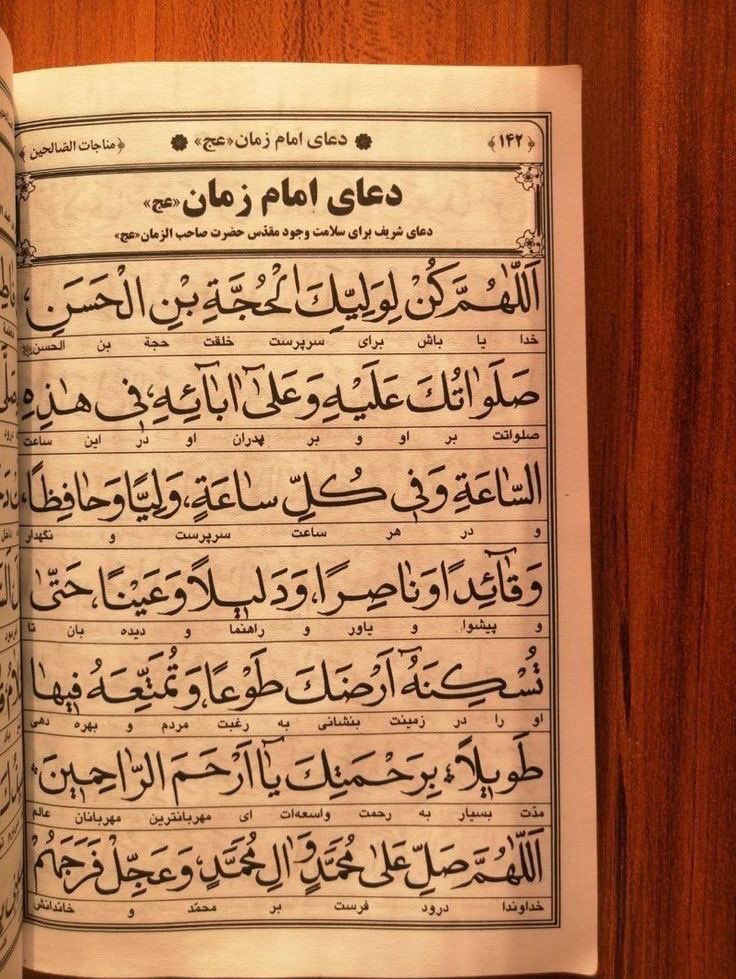 ﴿۱۴۲﴾ دعای امام زمان«عج» ﴿مناجات الصّالحین﴾
دعای امام زمان«عج»
دعای شریف برای سلامت وجود مقدّس حضرت صاحب الزمان«عج»
اَللّٰهُمَّ كُنْ لِوَلِيِّكَ الْحُجَّةِ بْنِ الْحَسَنِ،
خدا یا باش برای سرپرست خلقت حجة بن الحسن
صَلَواتُكَ عَلَيْهِ وَعَلىٰٓ اٰبآئِهِ، في هٰذِهِ
صلواتت بر او و بر پدران او در این ساعت
السّاعَةِ وَفي كُلِّ ساعَةٍ، وَلِيًّا وَحافِظًا،
و در هر ساعت سرپرست و نگهدار
وَقآئِدًا وَناصِرًا، وَدَليلاً وَعَيْنًا، حَتّىٰ
و پیشوا و یاور و راهنما و دیده بان تا
تُسْكِنَهُٓ اَرْضَكَ طَوْعًا، وَتُمَتِّعَهُ فيها
او را در زمینت بنشانی به رغبت مردم و بهره دهی
طَويلاً، بِرَحْمَتِكَ يآ اَرْحَمَ الرّاحِمينَ
مدّت بسیار به رحمت واسعه‌ات ای مهربانترین مهربانان عالم
اَللّٰهُمَّ صَلِّ عَلىٰ مُحَمَّدٍ وَاٰلِ مُحَمَّدٍ، وَعَجِّلْ فَرَجَهُمْ
خداوندا درود فرست بر محمّد و خاندانش